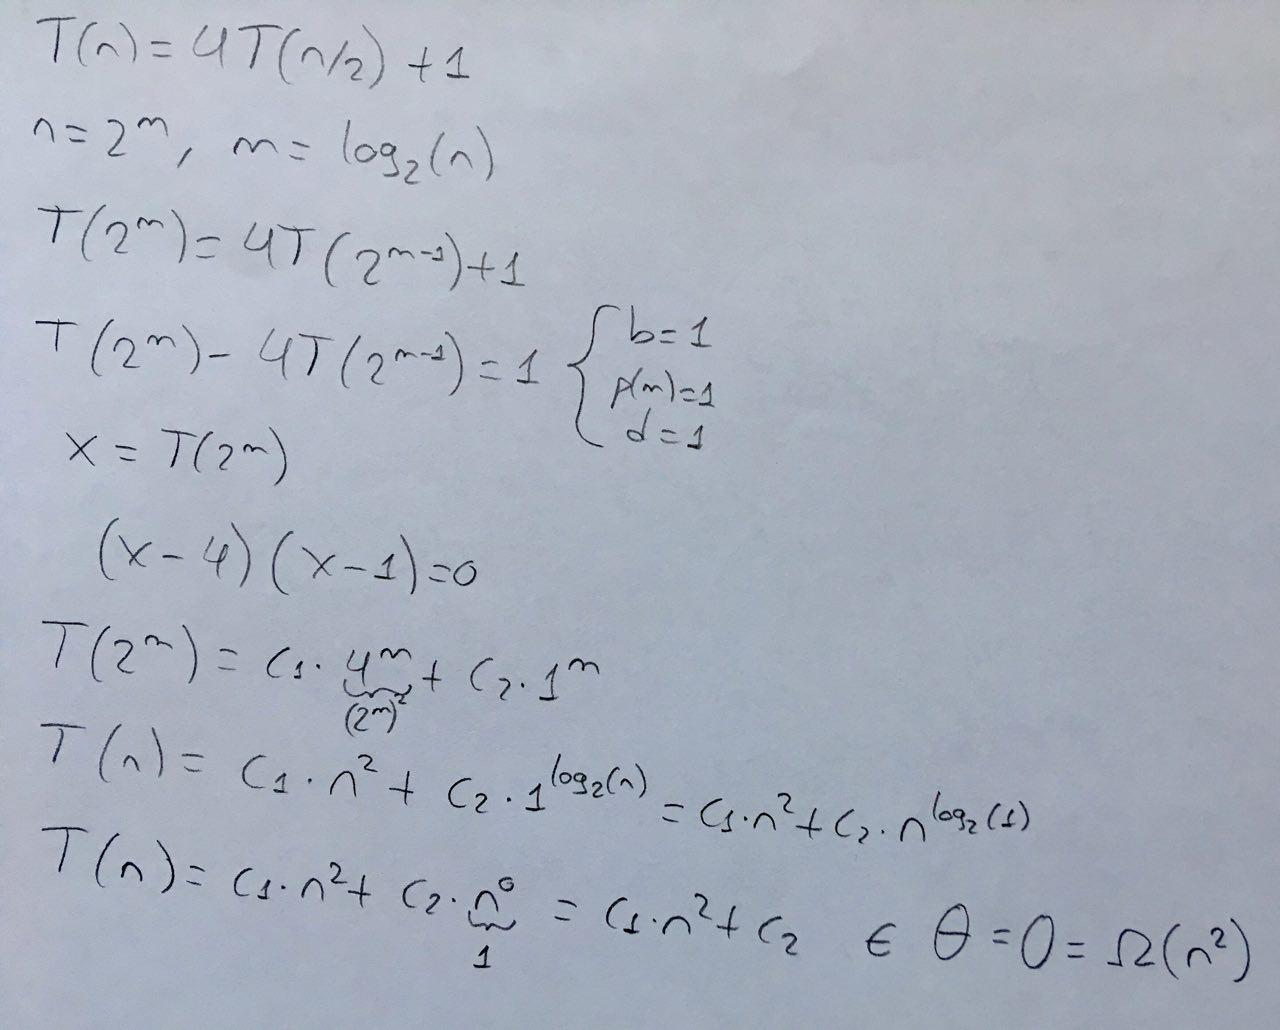 T(n) = 4T(n/2) + 1
n = 2^m, m = log₂(n)
T(2^m) = 4T(2^(m-1)) + 1
T(2^m) - 4T(2^(m-1)) = 1 { b = 1
p(m) = 1
d = 1
x = T(2^m)
(x - 4)(x - 1) = 0
T(2^m) = c₁ · 4^m + c₂ · 1^m
(2^m)²
T(n) = c₁ · n² + c₂ · 1^(log₂(n)) = c₁ · n² + c₂ · n^(log₂(1))
T(n) = c₁ · n² + c₂ · n⁰ = c₁ · n² + c₂ ∈ θ = O = Ω(n²)
1